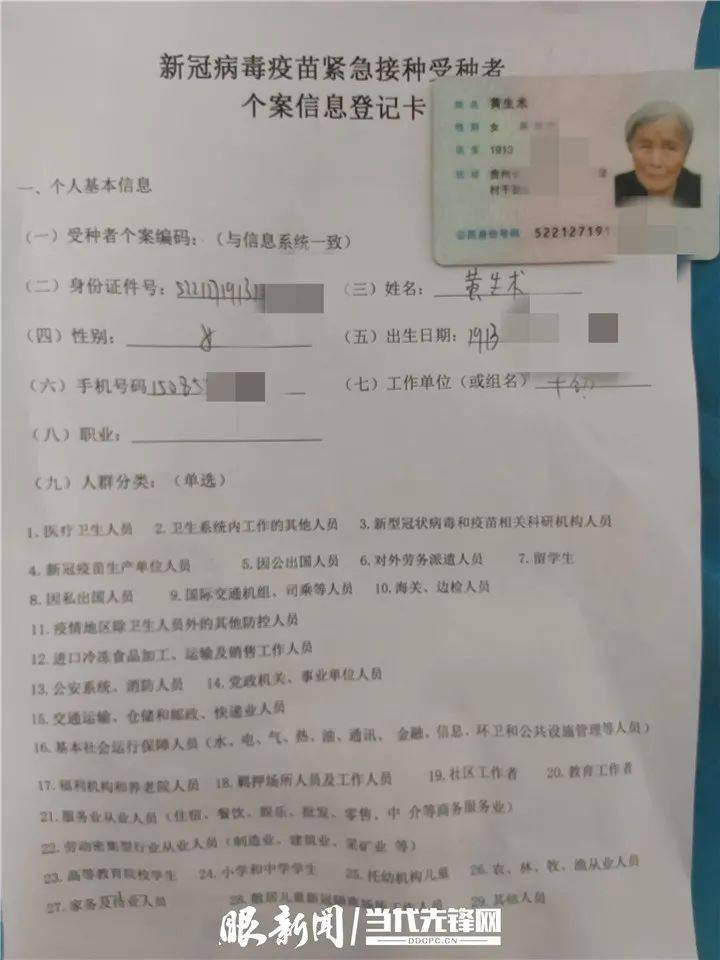 新冠病毒疫苗紧急接种受种者
个案信息登记卡
姓名 黄生术
性别 女
1913
住址 贵州
村干
公民身份号码 522127191
一、个人基本信息
（一）受种者个案编码：（与信息系统一致）
（二）身份证件号：5221271913
（三）姓名：黄生术
（四）性别：女
（五）出生日期：1913
（六）手机号码15085
（七）工作单位（或组名）
（八）职业：
（九）人群分类：（单选）
1.医疗卫生人员 2.卫生系统内工作的其他人员 3.新型冠状病毒和疫苗相关科研机构人员
4.新冠疫苗生产单位人员 5.因公出国人员 6.对外劳务派遣人员 7.留学生
8.因私出国人员 9.国际交通机组、司乘等人员 10.海关、边检人员
11.疫情地区除卫生人员外的其他防控人员
12.进口冷冻食品加工、运输及销售工作人员
13.公安系统、消防人员 14.党政机关、事业单位人员
15.交通运输、仓储和邮政、快递业人员
16.基本社会运行保障人员（水、电、气、热、油、通讯、金融、信息、环卫和公共设施管理等人员）
17.福利机构和养老院人员 18.羁押场所人员及工作人员 19.社区工作者 20.教育工作者
21.服务业从业人员（住宿、餐饮、娱乐、批发、零售、中 介等商务服务业）
22.劳动密集型行业从业人员（制造业、建筑业、采矿业 等）
23.高等教育院校学生 24.小学和中学学生 25.托幼机构儿童 26.农、林、牧、渔从业人员
27.家务及待业人员 28.散居儿童 29.其他人员
眼新闻/当代先锋网
DDCPC.CN